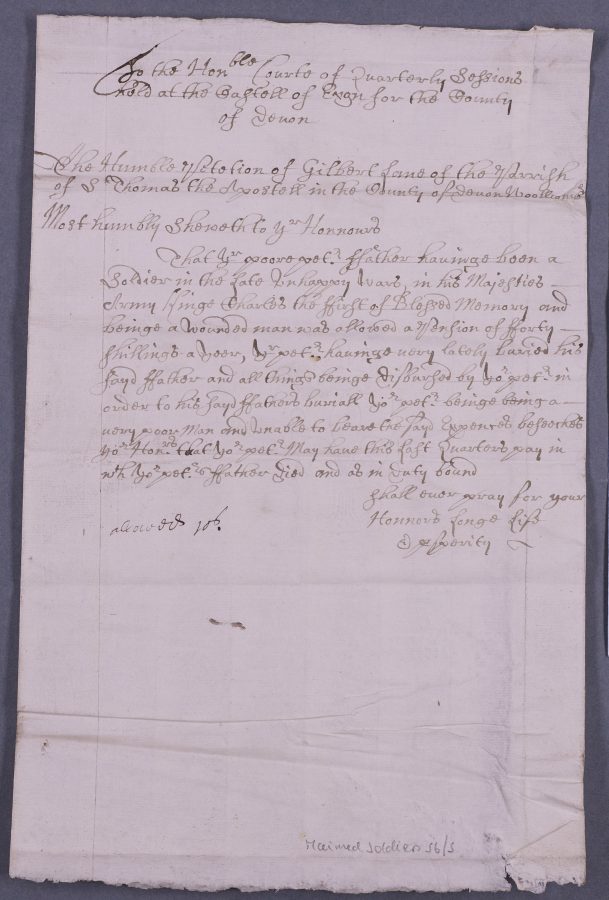 To the Honble Courte of Quarterly Sessions
held at the Castell of Exon for the County
of Devon
The Humble Petetion of Gilbert Lane of the Parrish
of St Thomas the Apostell in the County of Devon Woollcomer
Most humbly Sheweth to yr Honnours
That yr poore petr ffather haueinge been a
Soldier in the late Unhappy Wars, in his Majesties
Army Kinge Charles the ffirst of Blessed Memory and
beinge a wounded man was allowed a Pension of fforty
shillings a yeer, yr petr haueinge uery lately buried his
sayd ffather and all things beinge disbursed by yor petr in
order to his sayd ffathers buriall yor petr beinge being a
uery poor man and unable to beare the sayd Expences beseeches
yor Honrs that yor petr May haue this last Quarters pay in
wch yor petrs ffather died and as in duty bound
shall euer pray for your
Honnors longe life
& Psperity
allowed 10s.
Maimed soldiers 56/3